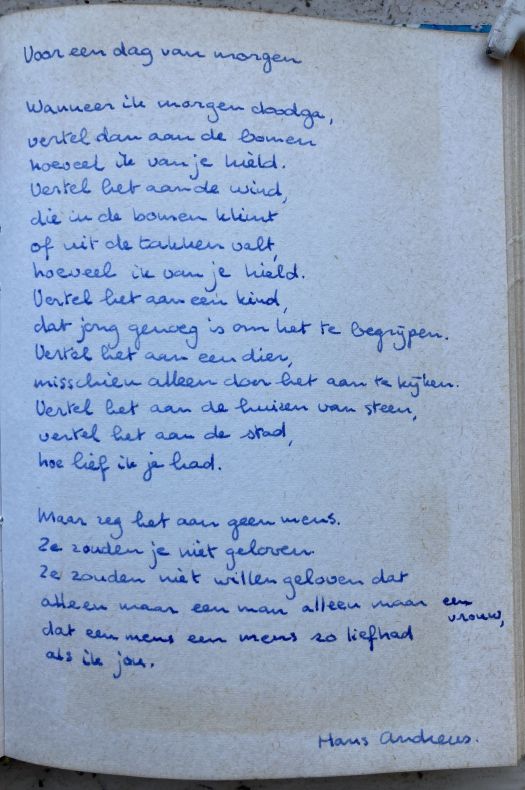 Voor een dag van morgen
Wanneer ik morgen doodga,
vertel dan aan de bomen
hoeveel ik van je hield.
Vertel het aan de wind,
die in de bomen klimt
of uit de takken valt,
hoeveel ik van je hield.
Vertel het aan een kind,
dat jong genoeg is om het te begrijpen.
Vertel het aan een dier,
misschien alleen door het aan te kijken.
Vertel het aan de huizen van steen,
vertel het aan de stad,
hoe lief ik je had.
Maar zeg het aan geen mens.
Ze zouden je niet geloven.
Ze zouden niet willen geloven dat
alleen maar een man alleen maar een
vrouw,
dat een mens een mens zo liefhad
als ik jou.
Hans Andreus.